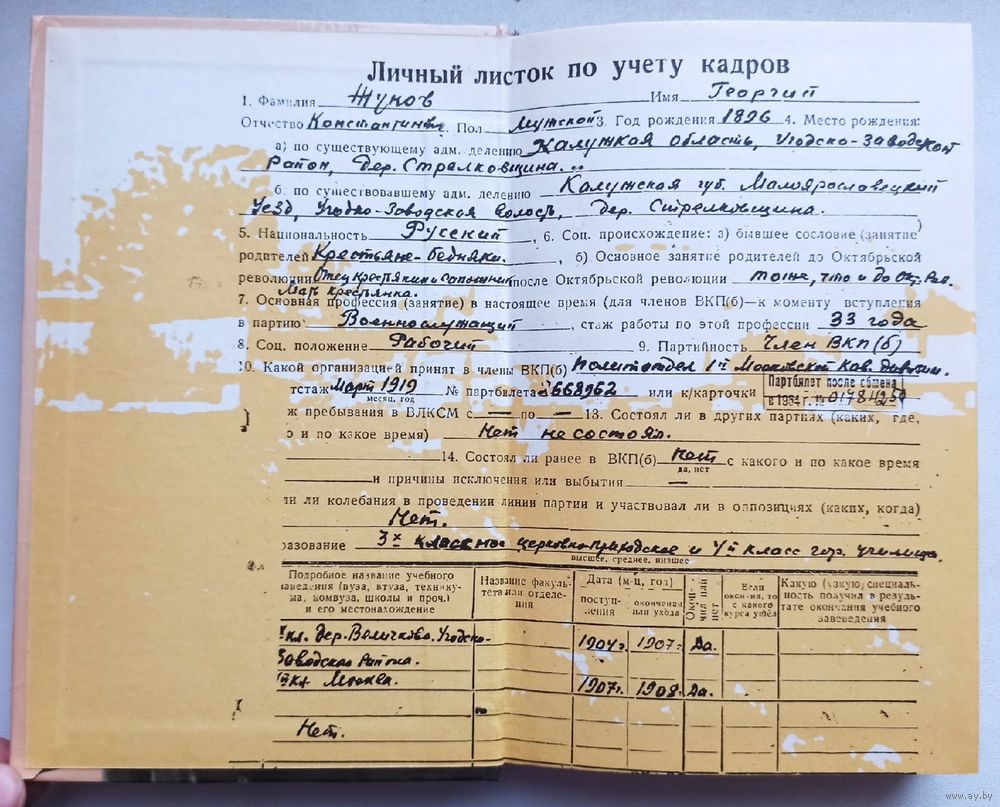 Личный листок по учету кадров
1. Фамилия Жуков Имя Георгий
Отчество Константинович 2. Пол Мужской 3. Год рождения 1896 4. Место рождения:
а) по существующему адм. делению Калужская область, Угодско-Заводской
Район, Дер. Стрелковщина.
б по существовавшему адм. делению Калужская губ. Малоярославецкий
Уезд, Угодско-Заводская Волость, дер. Стрелковщина.
5. Национальность Русский, 6. Соц. происхождение: а) бывшее сословие (занятие)
родителей Крестьяне-бедняки., б) Основное занятие родителей до Октябрьской
революции Отец крестьянин и сапожник после Октябрьской революции тоже, что и до Окт. Рев.
Мать крестьянка.
7. Основная профессия (занятие) в настоящее время (для членов ВКП(б)—к моменту вступления
в партию Военнослужащий, стаж работы по этой профессии 33 года
8. Соц. положение Рабочий 9. Партийность Член ВКП(б)
10. Какой организацией принят в члены ВКП(б) политотдел 1й Московской Кав. дивизии.
тстаж Март 1919 № партбилета 2668962 или к/карточки Партбилет после обмена
месяц, год в 1954 г. № 01784254
ж пребывания в ВЛКСМ с — по — 13. Состоял ли в других партиях (каких, где,
о и по какое время) Нет не состоял.
14. Состоял ли ранее в ВКП(б) нет с какого и по какое время
да, нет
и причины исключения или выбытия —
ли ли колебания в проведении линии партии и участвовал ли в оппозициях (каких, когда)
Нет.
разование 3х классное церковно-приходское и 4й класс гор. училища
высшее, среднее, низшее
Подробное название учебного заведения (вуза, втуза, технику-ма, комвуза, школы и проч.) и его местонахождение
Название факуль-тета или отделе-ния
Дата (м-ц, год)
поступ-ления
окончания или ухода
Окон-чил или нет
Если не окончил, то с какого курса ушёл
Какую (узкую) специаль-ность получил в резуль-тате окончания учебного заведения
кл. дер. Величково, Угодско- 1904г. 1907г. Да.
Заводского района.
кл. Москва. 1907г. 1908 Да.
Нет.
www.ay.by